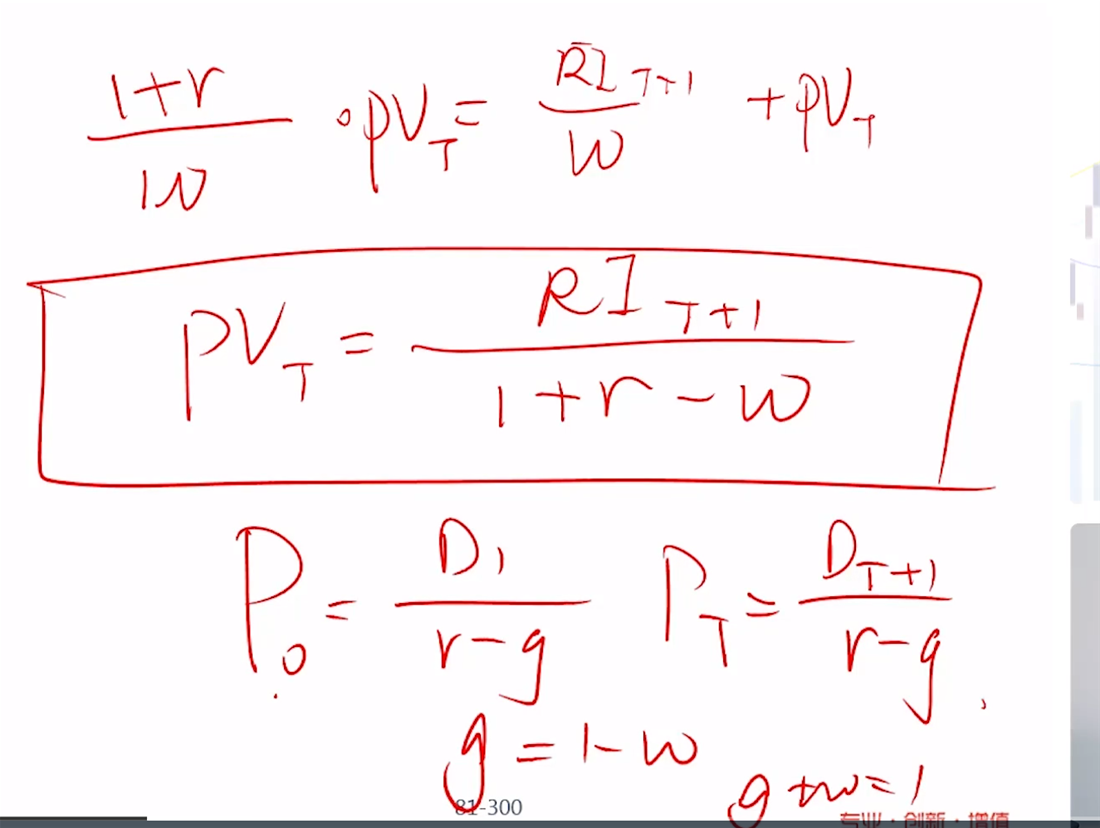 1+r/w · PV_T = RI_{T+1}/w + PV_T
PV_T = RI_{T+1}/1+r-w
P_0 = D_1/r-g  P_T = D_{T+1}/r-g
g = 1-w
g+w=1
81-300
专业·创新·增值